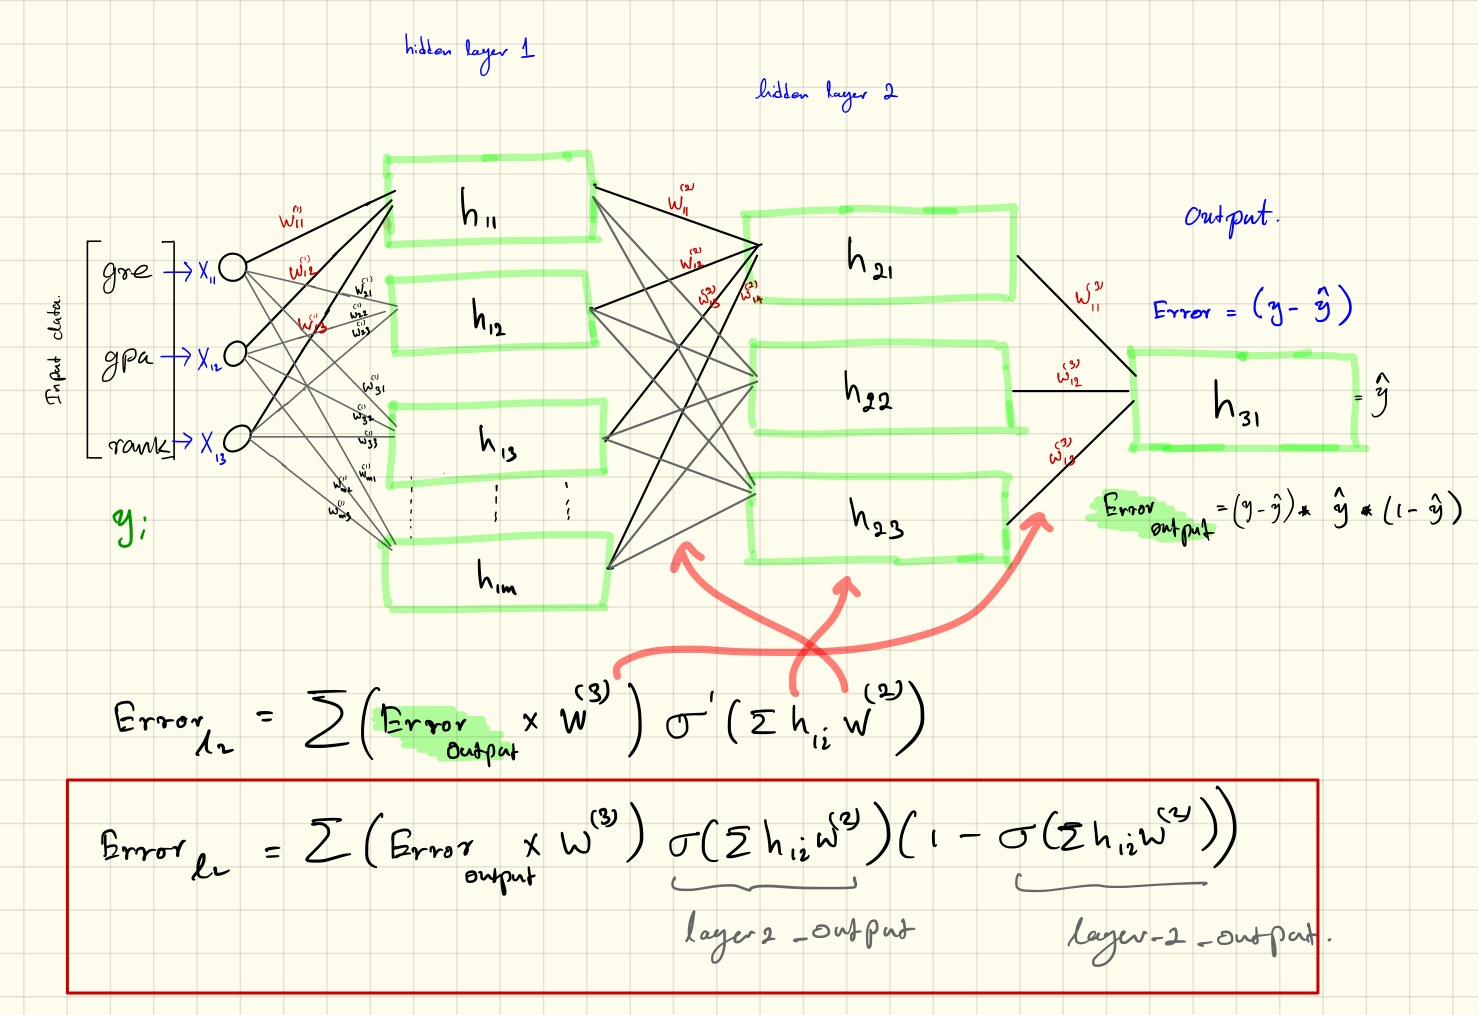 hidden layer 1
hidden layer 2
Output.
Input data.
gre → x₁₁
gpa → x₁₂
rank → x₁₃
yᵢ
W₁₁⁽¹⁾
W₁₂⁽¹⁾
W₁₃⁽¹⁾
W₂₁⁽¹⁾
W₂₂⁽¹⁾
W₂₃⁽¹⁾
W₃₁⁽¹⁾
W₃₂⁽¹⁾
W₃₃⁽¹⁾
Wₘ₁⁽¹⁾
Wₘ₂⁽¹⁾
Wₘ₃⁽¹⁾
h₁₁
h₁₂
h₁₃
h₁ₘ
W₁₁⁽²⁾
W₁₂⁽²⁾
W₁₃⁽²⁾
W₁₄⁽²⁾
h₂₁
h₂₂
h₂₃
W₁₁⁽³⁾
W₁₂⁽³⁾
W₁₃⁽³⁾
Error = (y - ŷ)
h₃₁ = ŷ
Error output = (y - ŷ) * ŷ * (1 - ŷ)
Error l₂ = Σ(Error output × W⁽³⁾) σ'(Σ h₁ᵢ W⁽²⁾)
Error l₂ = Σ(Error output × W⁽³⁾) σ(Σ h₁ᵢ W⁽²⁾)(1 - σ(Σ h₁ᵢ W⁽²⁾))
layer2_output
layer-2_output.